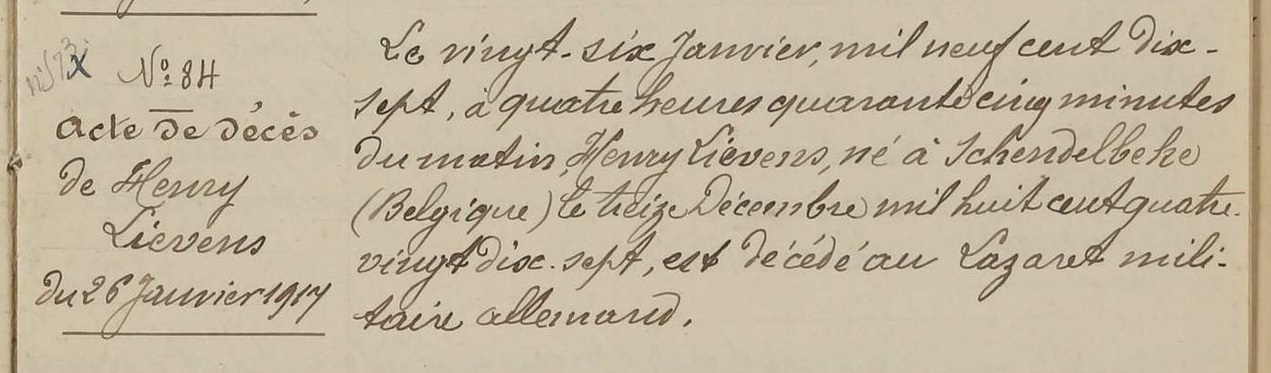 N° 84
Acte de décès
de Henry
Lievens
du 26 Janvier 1917
Le vingt-six Janvier, mil neuf cent dix-
sept, à quatre heures quarante cinq minutes
du matin, Henry Lievens, né à Schendelbeke
(Belgique) le treize Décembre mil huit cent quatre-
vingt dix-sept, est décédé au Lazaret mili-
taire allemand.